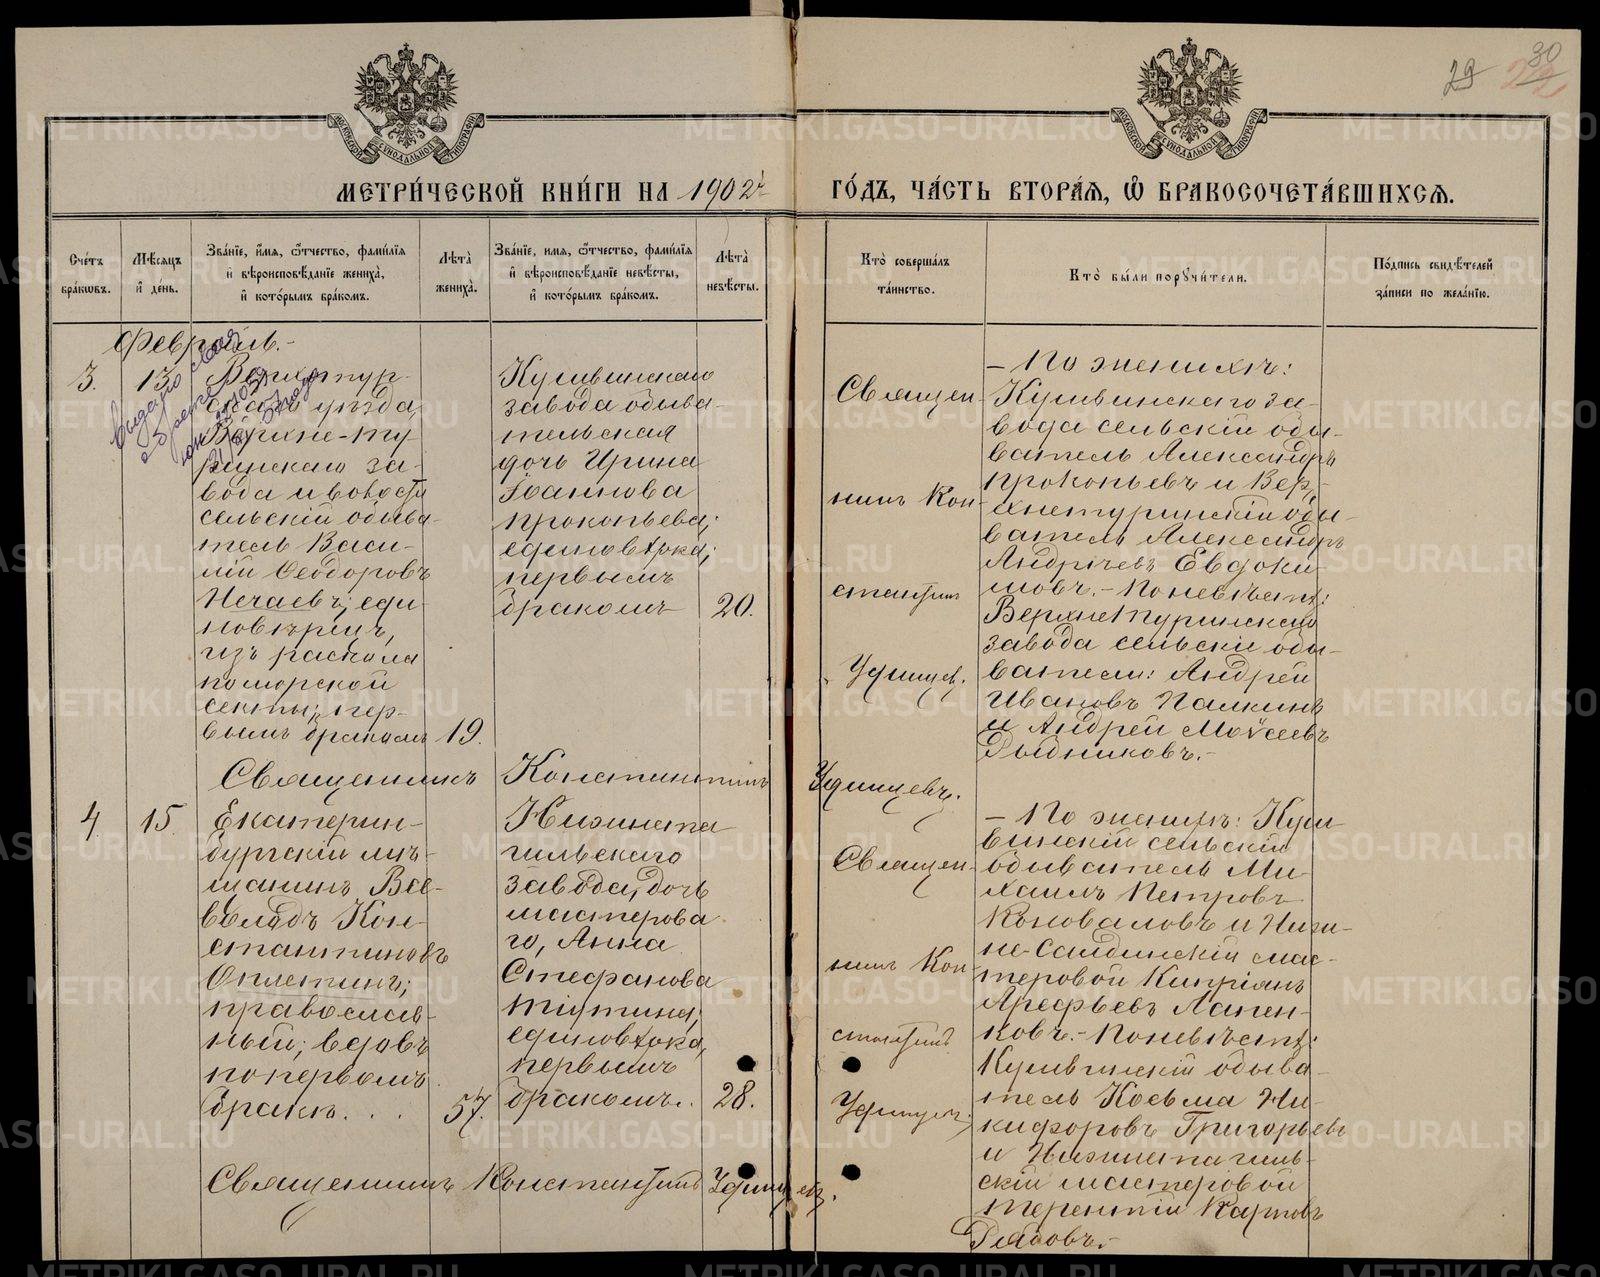 29 30
МЕТРИ́ЧЕСКОЙ КНИ́ГИ НА 1902й
ГО́ДЪ, ЧА́СТЬ ВТОРА́Я, Ѽ БРАКОСОЧЕТА́ВШИХСЯ.
Сче́тъ бра́кѡвъ.
Мѣ́сяцъ и҆ день.
Зва́нїе, и҆́мя, ѻ҆́тчество, фами́лїя
и҆ вѣроисповѣ́данїе жениха̀,
и҆ кото́рымъ бра́комъ.
Лѣта̀ жениха̀.
Зва́нїе, имя, ѻ҆́тчество, фами́лїя
и҆ вѣроисповѣ́данїе невѣ́сты,
и҆ кото́рымъ бра́комъ.
Лѣта̀ невѣ́сты.
Кто̀ соверша́лъ та́инство.
Кто̀ бы́ли порꙋчи́тели.
По́дпись свидѣ́телей за́писи по жела́нїю.
Февраль.-
3.
13
Верхотур-
скаго уѣзда,
Верхне-Ту-
ринскаго за-
вода и волости
сельскій обыва-
тель Васи-
лій Ѳеодоровъ
Нечаевъ; еди-
новѣрецъ,
изъ раскола
поморской
секты; пер-
вымъ бракомъ
19.
Кушвинскаго
завода обыва-
тельская
дочь Ирина
Іоаннова
Прокопьева;
единовѣрка;
первымъ
бракомъ
20.
Священ-
никъ Кон-
стантин
Удинцев.
- По женихѣ:
Кушвинскаго за-
вода сельскій обы-
ватель Александръ
Прокопьевъ и Вер-
хнетуринскій обы-
ватель Александръ
Андреевъ Евдоки-
мовъ.- По невѣстѣ:
Верхнетуринскаго
завода сельскіе обы-
ватели: Андрей
Ивановъ Палкинъ
и Андрей Моѵсеевъ
Дыдниковъ.-
Священникъ Константинъ Удинцевъ.
4
15
Екатерин-
бургскій мѣ-
щанинъ Все-
володъ Кон-
стантиновъ
Оплетинъ;
православ-
ный; вдовъ
по первомъ
бракѣ. . .
57.
Нижнета
гильскаго
завода, дочь
мастерова
го, Анна
Стефанова
Тютина;
единовѣрка,
первымъ
бракомъ.
28.
Священ-
никъ Кон
стантинъ
Удинцевъ
- По женихѣ: Куш
винскій сельскій
обыватель Ми
хаилъ Петровъ
Коноваловъ и Ниж-
не-Салдинскій мас-
теровой Кипріянъ
Арефьевъ Лапен-
ковъ.- По невѣстѣ:
Кушвинскій обыва-
тель Косьма Ни-
кифоровъ Григорьевъ
и Нижнетагиль-
скій мастеровой
Терентій Карповъ
Рябовъ.-
Священникъ Константинъ Удинцевъ.
METRIKI.GASO-URAL.RU